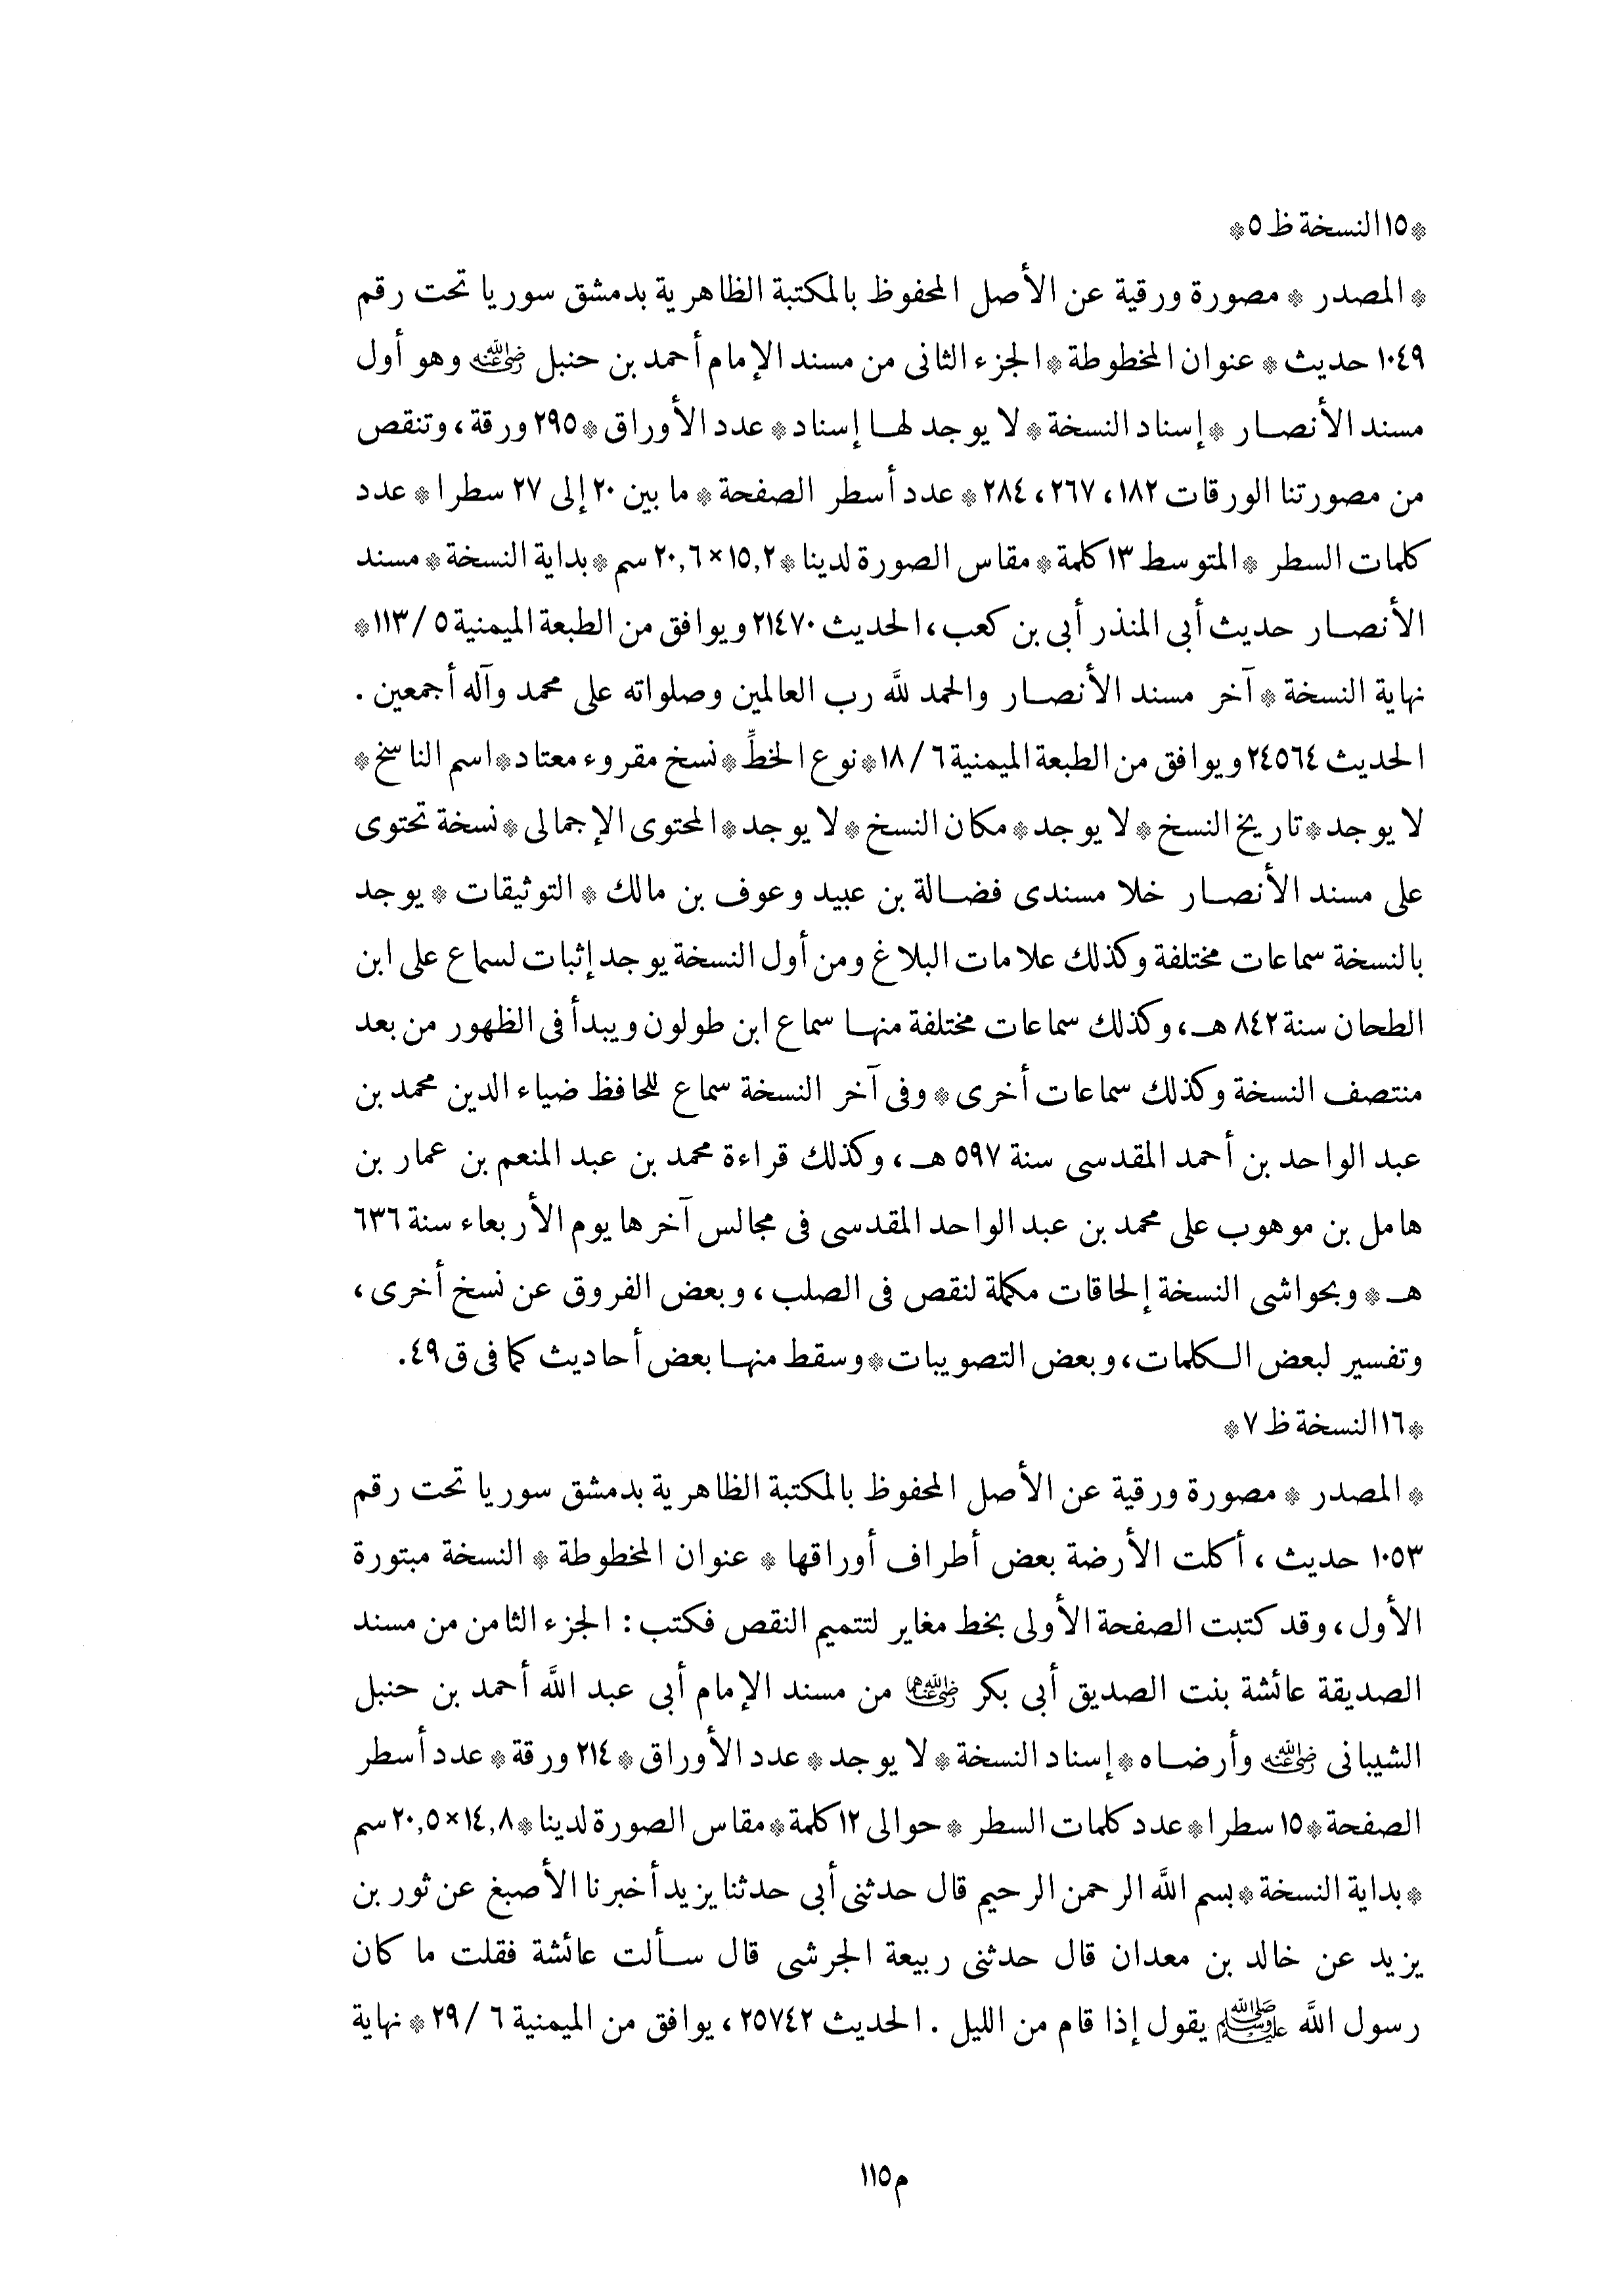 * ١٥ النسخة ظ ٥ *
* المصدر * مصورة ورقية عن الأصل المحفوظ بالمكتبة الظاهرية بدمشق سوريا تحت رقم
١٠٤٩ حديث * عنوان المخطوطة * الجزء الثانى من مسند الإمام أحمد بن حنبل رضي الله عنه وهو أول
مسند الأنصار * إسناد النسخة * لا يوجد لها إسناد * عدد الأوراق * ٢٩٥ ورقة، وتنقص
من مصورتنا الورقات ١٨٢، ٢٦٧، ٢٨٤ * عدد أسطر الصفحة * ما بين ٢٠ إلى ٢٧ سطرا * عدد
كلمات السطر * المتوسط ١٣ كلمة * مقاس الصورة لدينا * ١٥,٢ × ٢٠,٦ سم * بداية النسخة * مسند
الأنصار حديث أبى المنذر أبى بن كعب، الحديث ٢١٤٧٠ ويوافق من الطبعة الميمنية ٥ / ١١٣ *
نهاية النسخة * آخر مسند الأنصار والحمد لله رب العالمين وصلواته على محمد وآله أجمعين .
الحديث ٢٤٥٦٤ ويوافق من الطبعة الميمنية ٦ / ١٨ * نوع الخطِّ * نسخ مقروء معتاد * اسم الناسخ *
لا يوجد * تاريخ النسخ * لا يوجد * مكان النسخ * لا يوجد * المحتوى الإجمالى * نسخة تحتوى
على مسند الأنصار خلا مسندى فضالة بن عبيد وعوف بن مالك * التوثيقات * يوجد
بالنسخة سماعات مختلفة وكذلك علامات البلاغ ومن أول النسخة يوجد إثبات لسماع على ابن
الطحان سنة ٨٤٢ هـ، وكذلك سماعات مختلفة منها سماع ابن طولون ويبدأ فى الظهور من بعد
منتصف النسخة وكذلك سماعات أخرى * وفى آخر النسخة سماع للحافظ ضياء الدين محمد بن
عبد الواحد بن أحمد المقدسى سنة ٥٩٧ هـ، وكذلك قراءة محمد بن عبد المنعم بن عمار بن
هامل بن موهوب على محمد بن عبد الواحد المقدسى فى مجالس آخرها يوم الأربعاء سنة ٦٣٦
هـ * وبحواشى النسخة إلحاقات مكملة لنقص فى الصلب، وبعض الفروق عن نسخ أخرى،
وتفسير لبعض الكلمات، وبعض التصويبات * وسقط منها بعض أحاديث كما فى ق ٤٩.
* ١٦ النسخة ظ ٧ *
* المصدر * مصورة ورقية عن الأصل المحفوظ بالمكتبة الظاهرية بدمشق سوريا تحت رقم
١٠٥٣ حديث، أكلت الأرضة بعض أطراف أوراقها * عنوان المخطوطة * النسخة مبتورة
الأول، وقد كتبت الصفحة الأولى بخط مغاير لتتميم النقص فكتب : الجزء الثامن من مسند
الصديقة عائشة بنت الصديق أبى بكر رضي الله عنهما من مسند الإمام أبى عبد الله أحمد بن حنبل
الشيبانى رضي الله عنه وأرضاه * إسناد النسخة * لا يوجد * عدد الأوراق * ٢١٤ ورقة * عدد أسطر
الصفحة * ١٥ سطرا * عدد كلمات السطر * حوالى ١٢ كلمة * مقاس الصورة لدينا * ١٤,٨ × ٢٠,٥ سم
* بداية النسخة * بسم الله الرحمن الرحيم قال حدثنى أبى حدثنا يزيد أخبرنا الأصبغ عن ثور بن
يزيد عن خالد بن معدان قال حدثنى ربيعة الجرشى قال سألت عائشة فقلت ما كان
رسول الله ﷺ يقول إذا قام من الليل . الحديث ٢٥٧٤٢، يوافق من الميمنية ٦ / ٢٩ * نهاية
م ١١٥